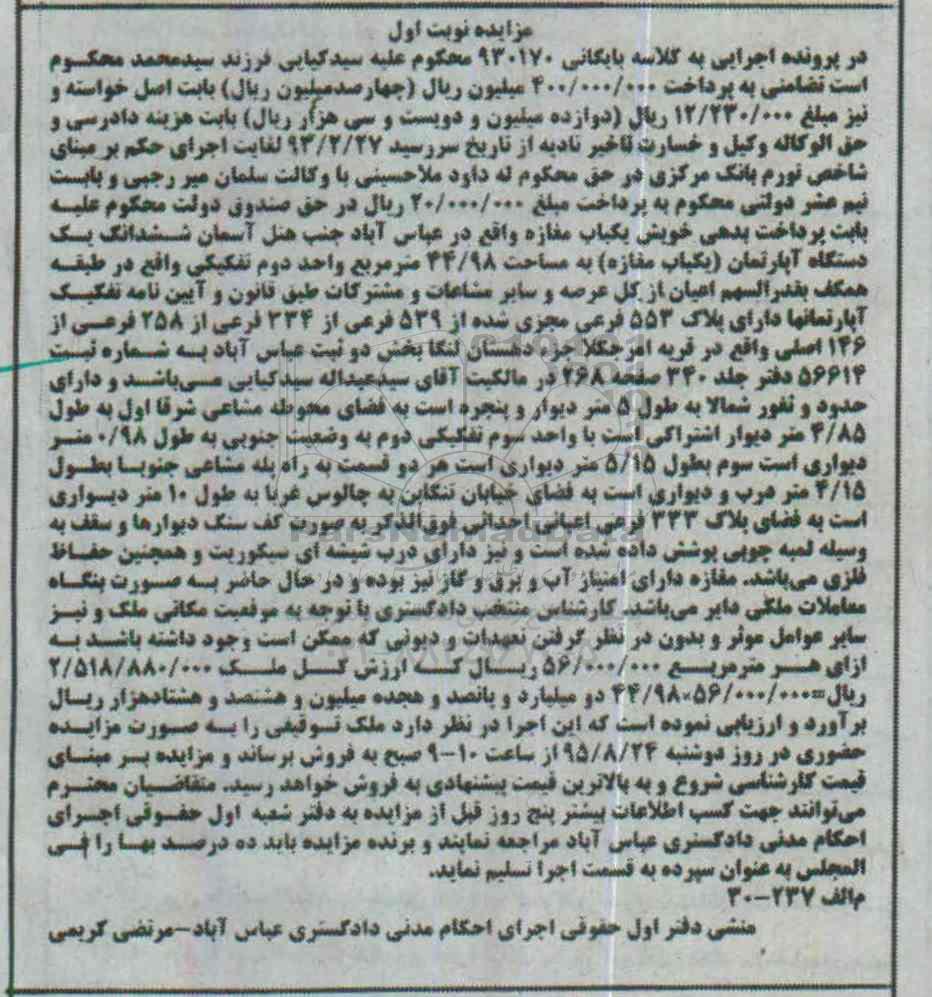 مزایده نوبت اول
در پرونده اجرایی به کلاسه بایگانی ۹۳۰۱۷۰ محکوم علیه سیدکیایی فرزند سیدمحمد محکوم
است تضامنی به پرداخت ۴۰۰/۰۰۰/۰۰۰ میلیون ریال (چهارصدمیلیون ریال) بابت اصل خواسته و
نیز مبلغ ۱۲/۲۳۰/۰۰۰ ریال (دوازده میلیون و دویست و سی هزار ریال) بابت هزینه دادرسی و
حق الوکاله وکیل و خسارت تاخیر تادیه از تاریخ سررسید ۹۳/۲/۲۷ لغایت اجرای حکم بر مبنای
شاخص تورم بانک مرکزی در حق محکوم له داود ملاحسینی با وکالت سلمان میر رجبی و بابست
نیم عشر دولتی محکوم به پرداخت مبلغ ۲۰/۰۰۰/۰۰۰ ریال در حق صندوق دولت محکوم علیه
بابت پرداخت بدهی خویش یکباب مغازه واقع در عباس آباد جنب هتل آسمان ششدانگ یک
دستگاه آپارتمان (یکباب مغازه) به مساحت ۴۴/۹۸ مترمربع واحد دوم تفکیکی واقع در طبقه
همکف بقدرالسهم اعیان از کل عرصه و سایر مشاعات و مشترکات طبق قانون و آیین نامه تفکیک
آپارتمانها دارای پلاک ۵۵۳ فرعی مجزی شده از ۵۳۹ فرعی از ۳۳۴ فرعی از ۲۵۸ فرعی از
۱۴۶ اصلی واقع در قریه امرجکلا جزء دهستان لنگا بخش دو ثبت عباس آباد به شماره ثبت
۵۶۶۱۴ دفتر جلد ۳۴۰ صفحه ۲۶۸ در مالکیت آقای سیدعبداله سیدکیایی می‌باشد و دارای
حدود و ثغور شمالا به طول ۵ متر دیوار و پنجره است به فضای محوطه مشاعی شرقا اول به طول
۴/۸۵ متر دیوار اشتراکی است با واحد سوم تفکیکی دوم به وضعیت جنوبی به طول ۰/۹۸ متر
دیواری است سوم بطول ۵/۱۵ متر دیواری است هر دو قسمت به راه پله مشاعی جنوبا بطول
۴/۱۵ متر درب و دیواری است به فضای خیابان تنکابن به چالوس غربا به طول ۱۰ متر دیسواری
است به فضای پلاک ۳۳۳ فرعی اعیانی احداثی فوق‌الذکر به صورت کف سنگ دیوارها و سقف به
وسیله لمبه چوبی پوشش داده شده است و نیز دارای درب شیشه ای سیکوریت و همچنین حفاظ
فلزی می‌باشد. مغازه دارای امتیاز آب و برق و گاز نیز بوده و در حال حاضر به صورت بنگاه
معاملات ملکی دایر می‌باشد. کارشناس منتخب دادگستری با توجه به موقعیت مکانی ملک و نیز
سایر عوامل موثر و بدون در نظر گرفتن تعهدات و دیونی که ممکن است وجود داشته باشد به
ازای هر مترمربع ۵۶/۰۰۰/۰۰۰ ریال که ارزش کل ملک ۲/۵۱۸/۸۸۰/۰۰۰
ریال=۴۴/۹۸×۵۶/۰۰۰/۰۰۰ دو میلیارد و پانصد و هجده میلیون و هشتصد و هشتادهزار ریال
برآورد و ارزیابی نموده است که این اجرا در نظر دارد ملک توقیفی را به صورت مزایده
حضوری در روز دوشنبه ۹۵/۸/۲۴ از ساعت ۱۰-۹ صبح به فروش برساند و مزایده بر مبنای
قیمت کارشناسی شروع و به بالاترین قیمت پیشنهادی به فروش خواهد رسید. متقاضیان محترم
می‌توانند جهت کسب اطلاعات بیشتر پنج روز قبل از مزایده به دفتر شعبه اول حقوقی اجرای
احکام مدنی دادگستری عباس آباد مراجعه نمایند و برنده مزایده باید ده درصد بها را فی
المجلس به عنوان سپرده به قسمت اجرا تسلیم نماید.
م‌الف ۲۳۷-۳۰
منشی دفتر اول حقوقی اجرای احکام مدنی دادگستری عباس آباد-مرتضی کریمی
ParsNamadData